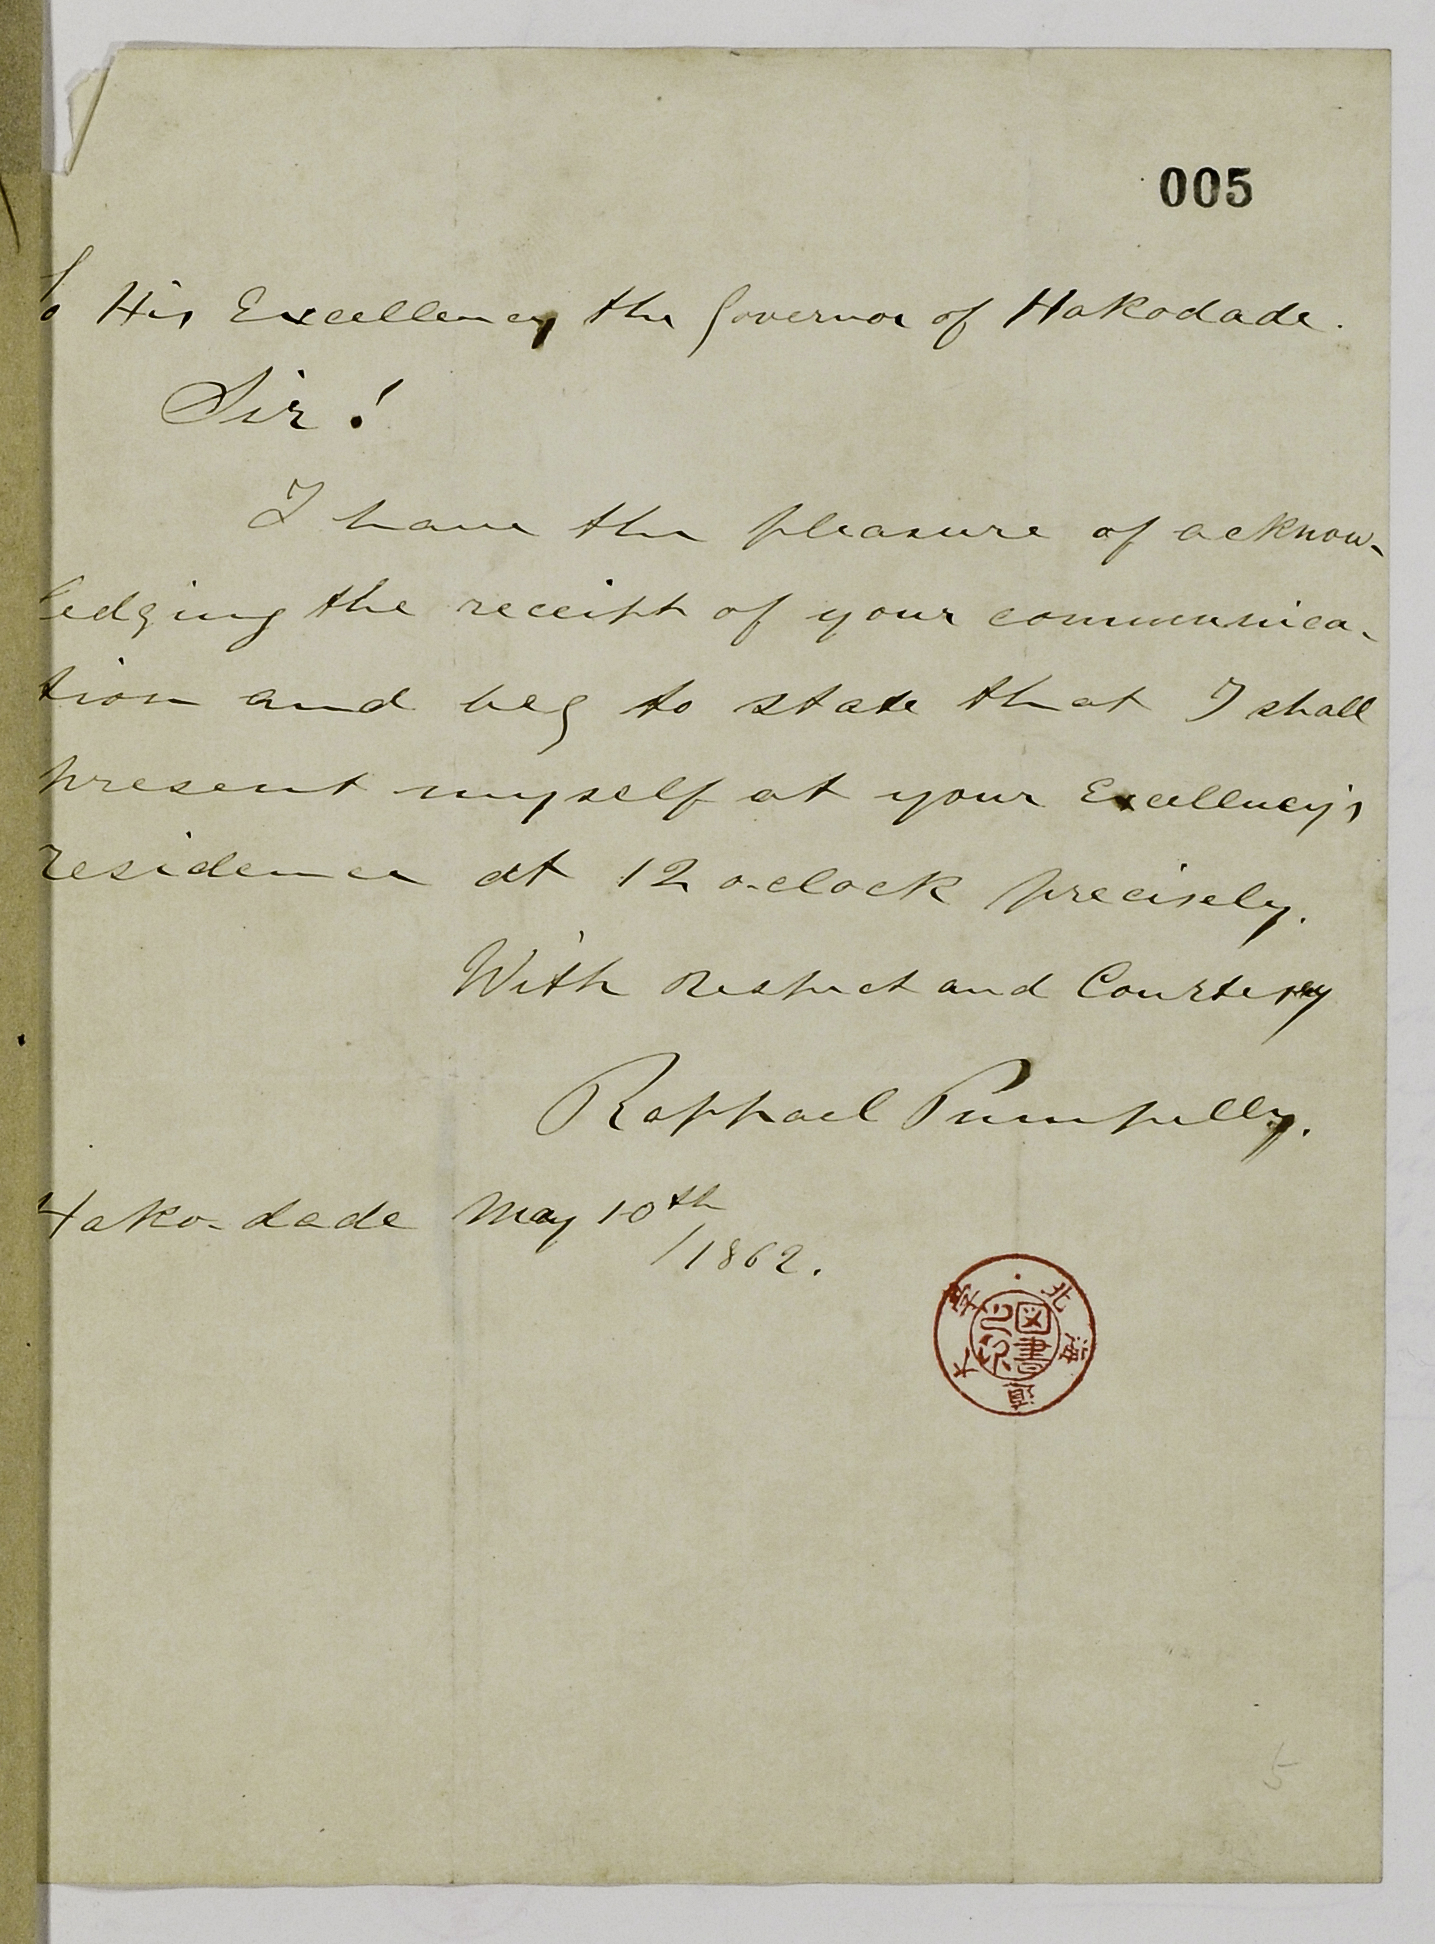 005
To His Excellency the Governor of Hakodade.
Sir!
I have the pleasure of acknow-
ledging the receipt of your communica-
tion and beg to state that I shall
present myself at your Excellency's
residence at 12 o-clock precisely.
With respect and Courtesy
Raphael Pumpelly.
Hako-dade May 10th
/1862.
北海道大学
図書
5